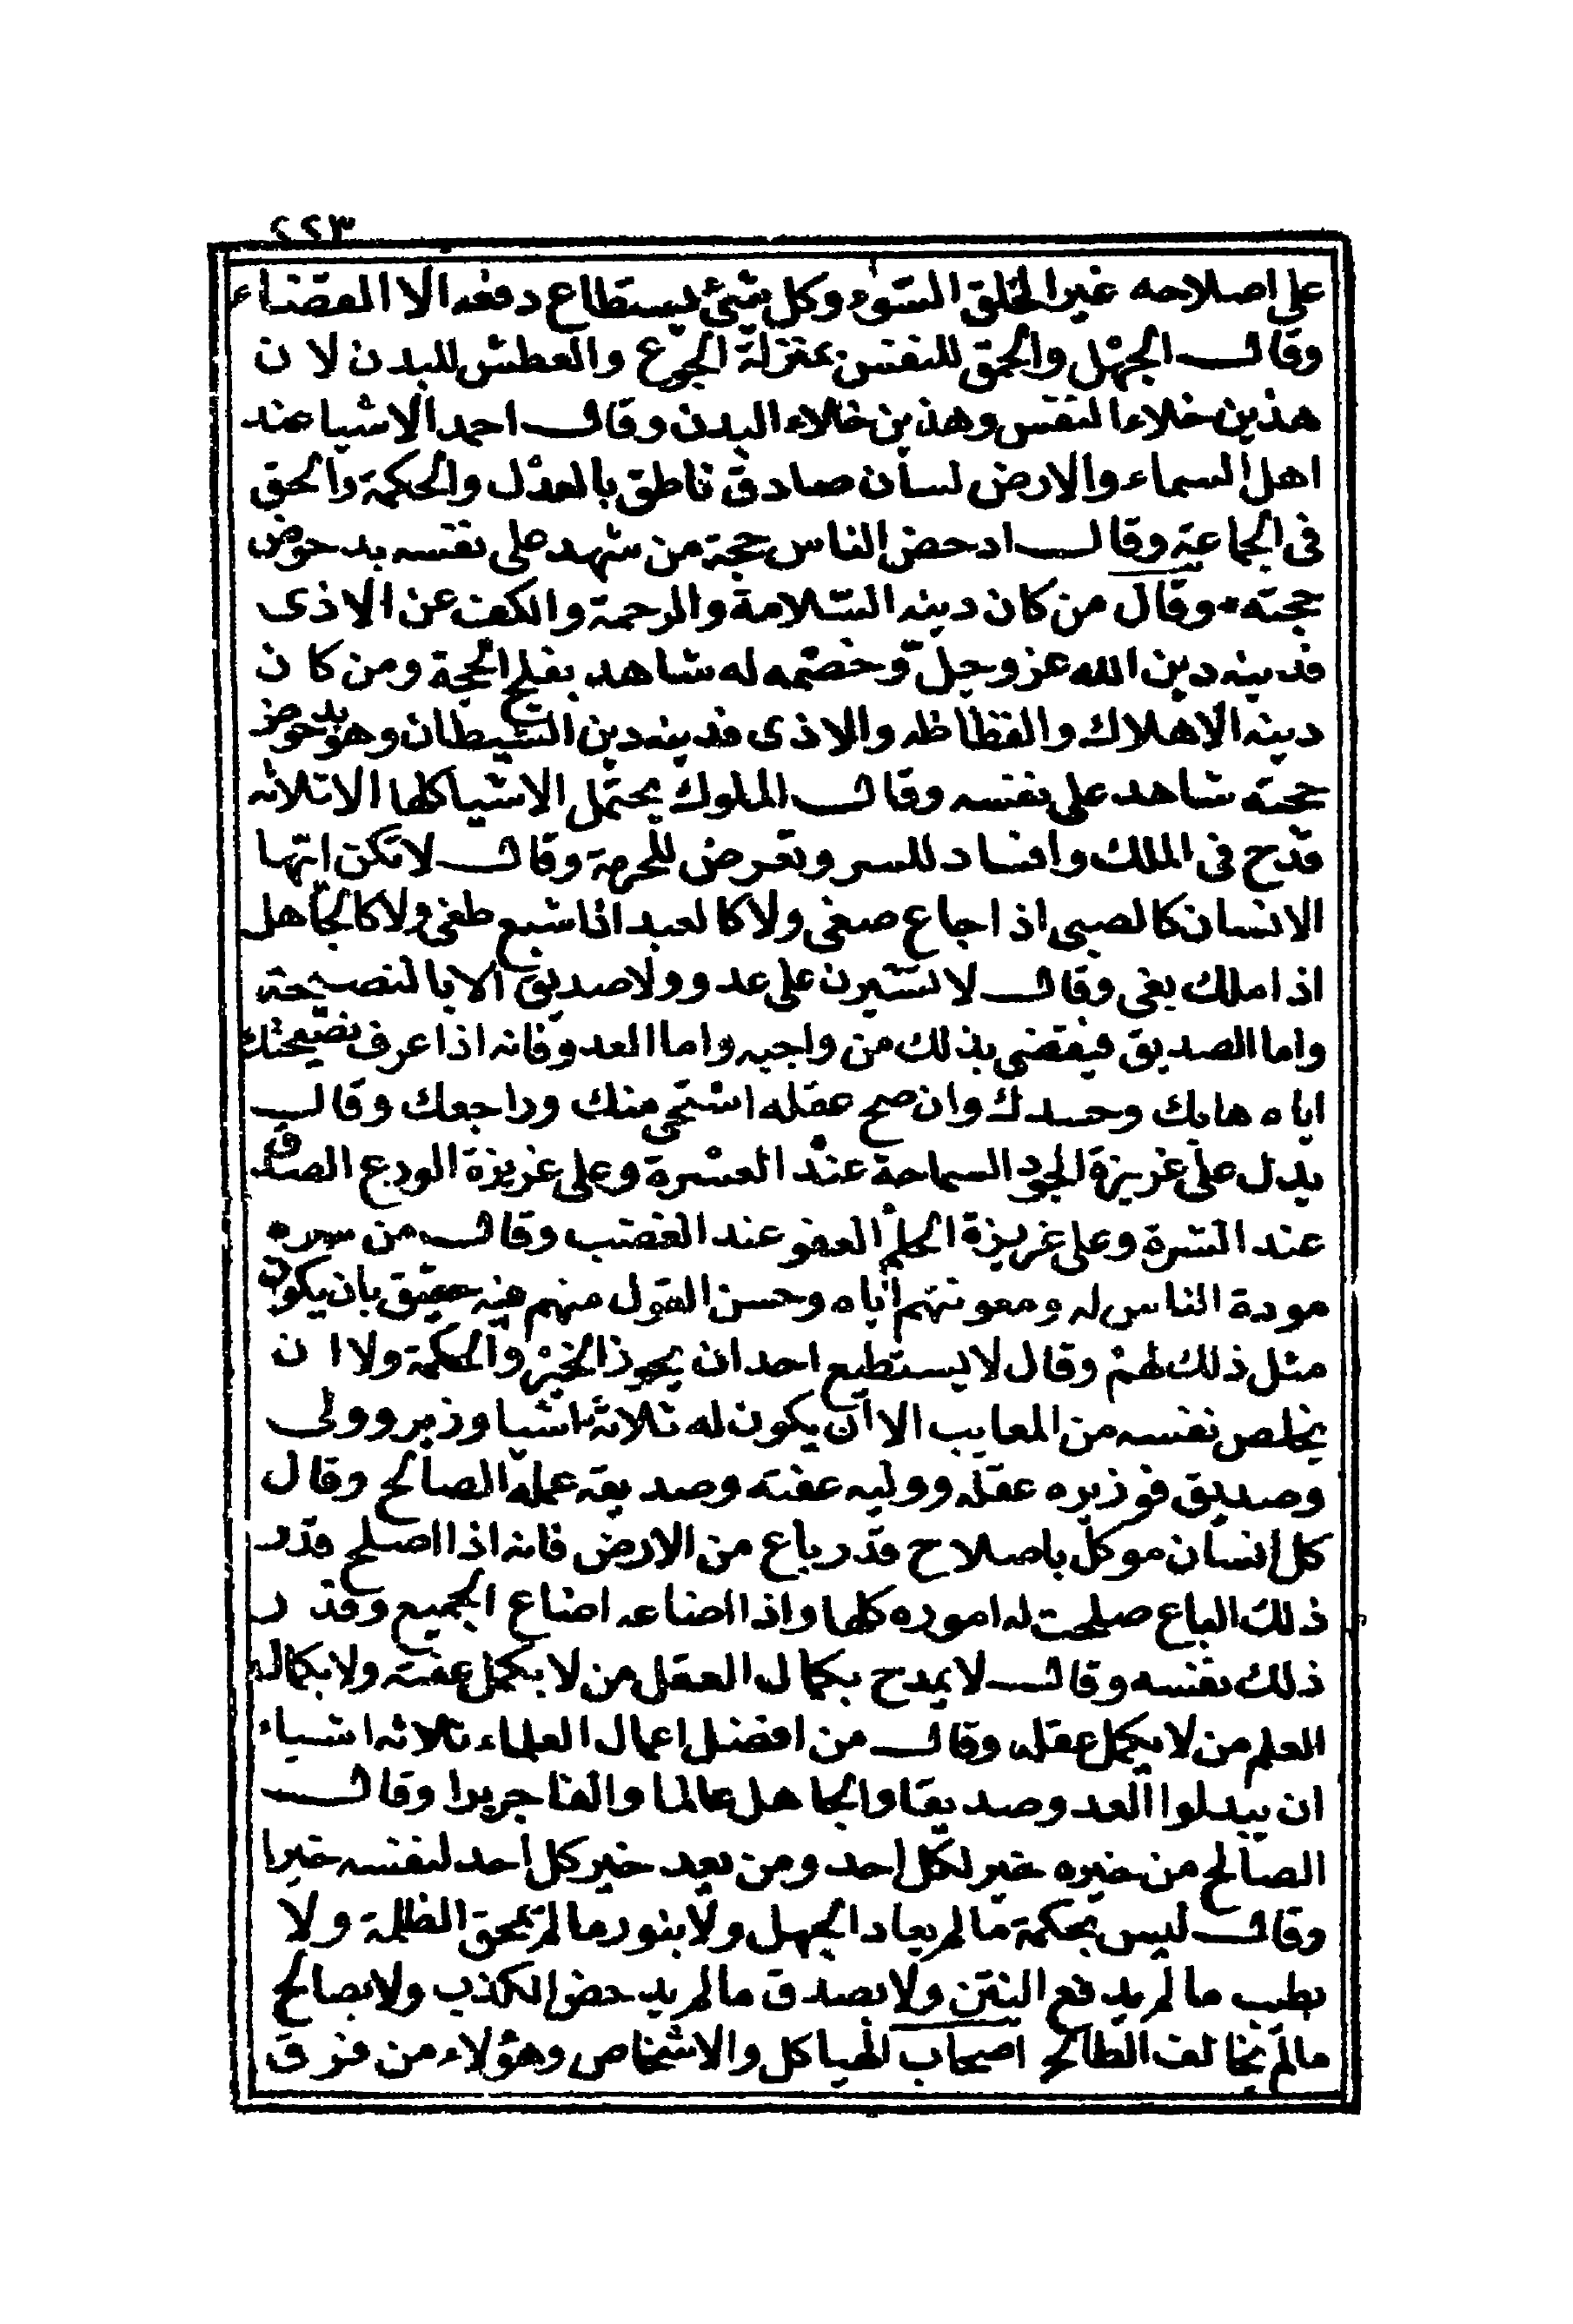 ٢٢٣
على اصلاحه غير الخلق السوء وكل شيئ يستطاع دفعه الا القضاء
وقال الجهل والحمق للنفس بمنزلة الجوع والعطش للبدن لان
هذين خلاء النفس وهذين خلاء البدن وقال احمد الاشيا عند
اهل السماء والارض لسان صادق ناطق بالعدل والحكمة والحق
فى الجماعة وقال ادحض الناس حجة من شهد على نفسه بدحوض
حجته وقال من كان دينه السلامة والرحمة والكف عن الاذى
فدينه دين الله عز وجل وخصمه له شاهد بفلج الحجة ومن كان
دينه الاهلاك والفظاظه والاذى فدينه دين الشيطان وهو بدحوض
حجته شاهد على نفسه وقال الملوك يحتمل الاشيا كلها الا ثلاثه
قدح فى الملك وافساد للسر وتعرض للحرمة وقال لا تكن ايها
الانسان كالصبى اذا جاع صغى ولا كالعبد اذا شبع طغى ولا كالجاهل
اذا ملك بغى وقال لا تشيرن على عدو ولا صديق الا بالنصيحة
واما الصديق فيقضى بذلك من واجبه واما العدو فانه اذا عرف نصيحتك
اياه هابك وحسدك وان صح عقله استحى منك وراجعك وقال
يدل على غريزة الجود السماحة عند العسرة وعلى غريزة الورع الصدق
عند الشرة وعلى غريزة الحلم العفو عند الغضب وقال من سره
مودة الناس له ومعونتهم اياه وحسن القول منهم فيه حقيق بان يكون
مثل ذلك لهم وقال لا يستطيع احد ان يحوز الخير والحكمة ولا ان
يخلص نفسه من المعايب الا ان يكون له ثلاثة اشيا وزير وولى
وصديق فوزيره عقله ووليه عفته وصديقه عمله الصالح وقال
كل انسان موكل باصلاح قدر باع من الارض فانه اذا اصلح قدر
ذلك الباع صلحت له اموره كلها واذا اضاعه اضاع الجميع وقدر
ذلك نفسه وقال لا يمدح بكمال العقل من لا يكمل عفته ولا بكمال
العلم من لا يكمل عقله وقال من افضل اعمال العلماء ثلاثه اشياء
ان يبدلوا العدو صديقا والجاهل عالما والفاجر برا وقال
الصالح من خيره خير لكل احد ومن يعد خير كل احد لنفسه خيرا
وقال ليس بحكمة ما لم يعاد الجهل ولا بنور ما لم يمحق الظلمة ولا
بطيب ما لم يدفع النتن ولا بصدق ما لم يدحض الكذب ولا بصالح
ما لم يخالف الطالح اصحاب الهياكل والاشخاص وهؤلاء من فرق